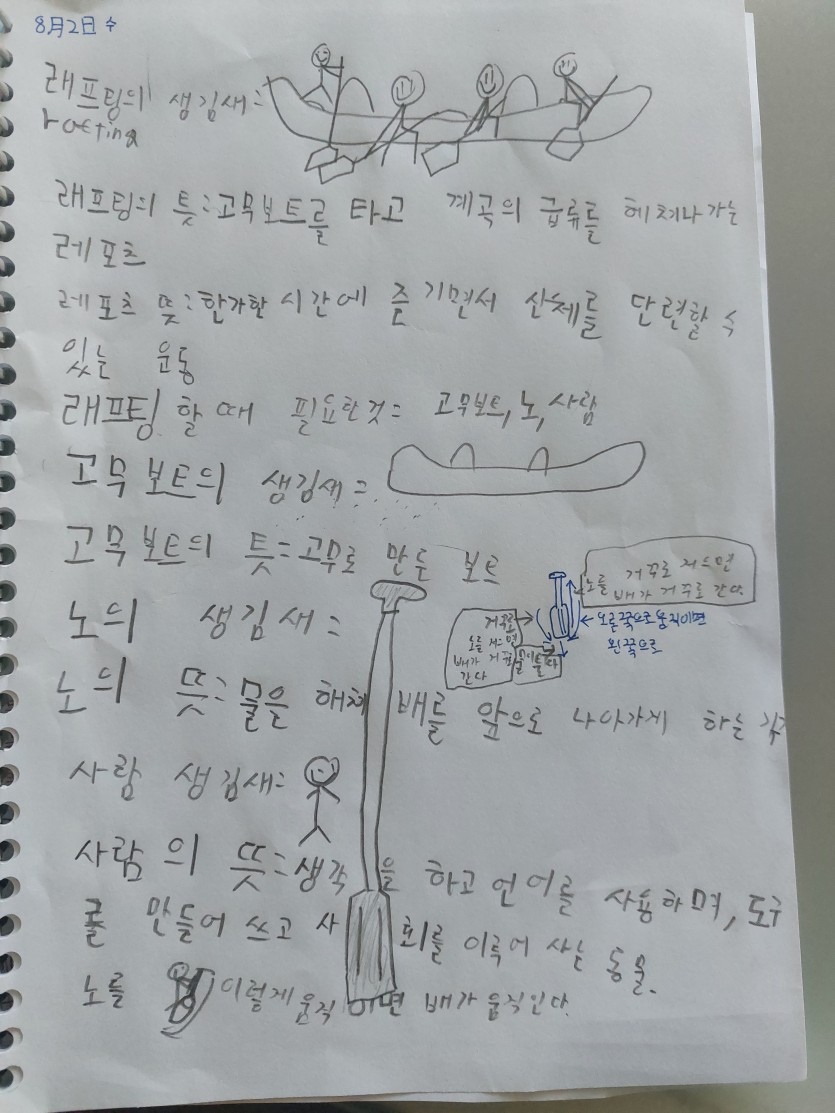 8月2日 수
래프팅의 생김새=
rafting
래프팅의 뜻:고무보트를 타고 계곡의 급류를 헤쳐나가는
레포츠
레포츠 뜻:한가한 시간에 즐기면서 신체를 단련할 수
있는 운동
래프팅 할때 필요한것= 고무보트, 노, 사람
고무보트의 생김새=
고무보트의 뜻=고무로 만든 보트
노를 거꾸로 저으면
배가 거꾸로 간다.
노의 생김새=
거꾸로
노를 저으면
배가 거꾸로
간다
오른쪽으로 움직이면
왼쪽으로
노의 뜻:물을 헤쳐 배를 앞으로 나아가게 하는
사람 생김새=
사람의 뜻=생각을 하고 언어를 사용하며, 도구
를 만들어 쓰고 사회를 이루어 사는 동물.
노를 이렇게 움직이면 배가 움직인다.